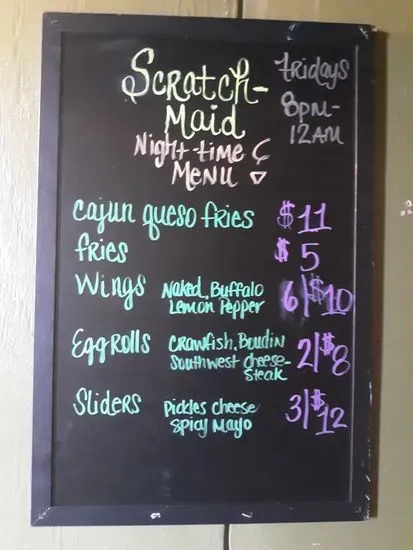 Scratch-
Maid
Night-time
Menu
Fridays
8pm-
12am
Cajun queso fries $11
fries $5
Wings Naked, Buffalo 6|$10
Lemon Pepper
Eggrolls Crawfish, Boudin 2|$8
Southwest Cheese-
Steak
Sliders Pickles Cheese 3|$12
Spicy Mayo